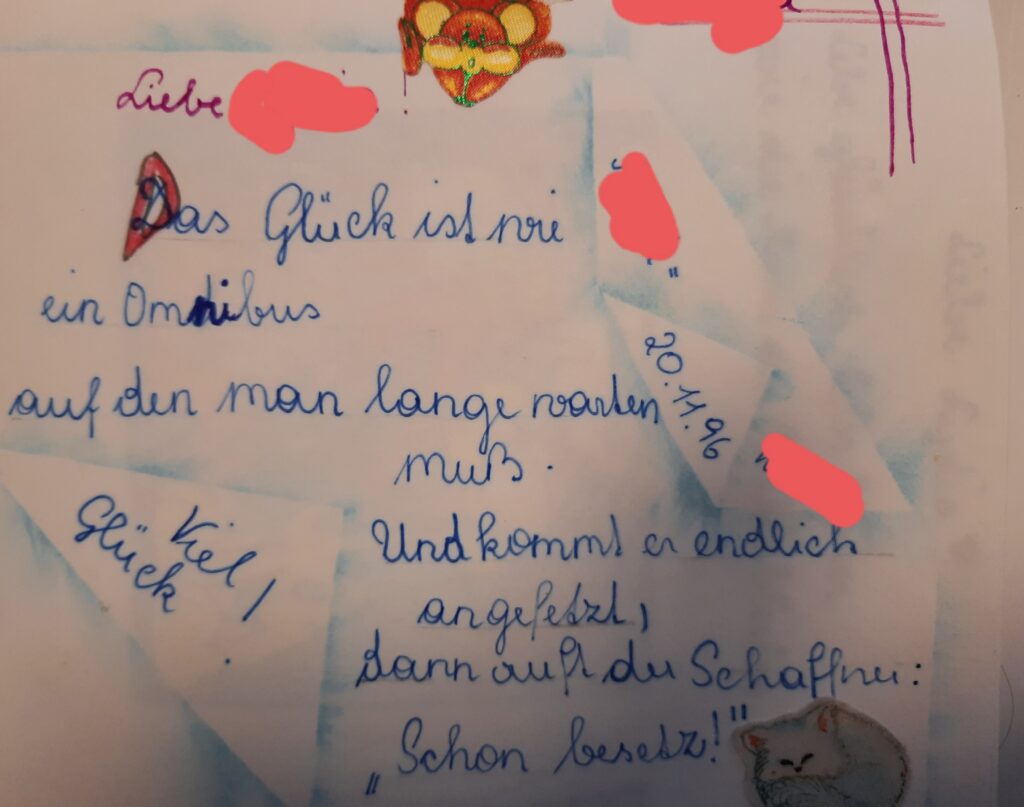 Liebe
Das Glück ist wie
ein Omnibus
auf den man lange warten
muß.
20.11.96
Viel
Glück!
Und kommt er endlich
angefetzt,
dann ruft der Schaffner:
„Schon besetz!"